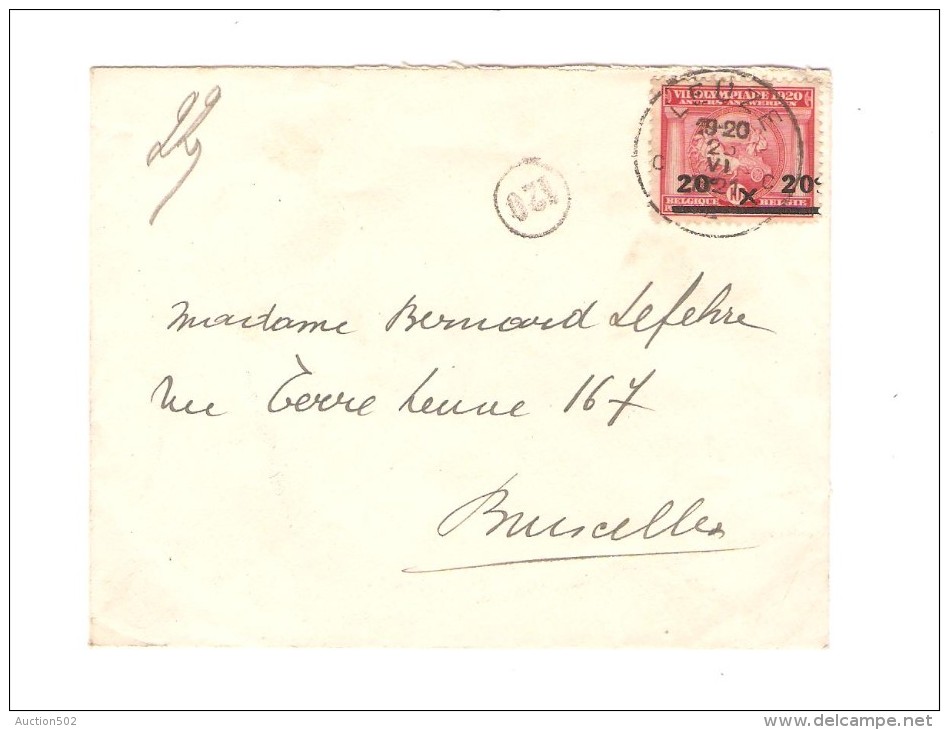 29
VII OLYMPIADE 1920
ANVERS ANTWERPEN
LEUZE
19-20
VI
20c 20c
BELGIQUE BELGIE
120
Madame Bernard Lefebre
rue Terre Neuve 167
Bruxelles
Auction502
www.delcampe.net